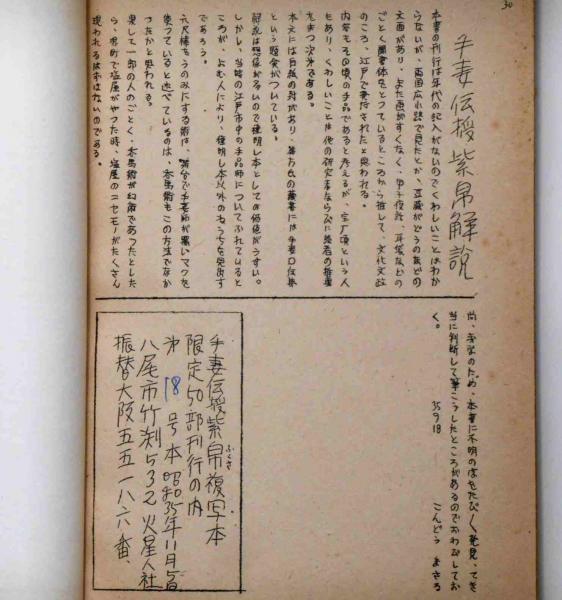 30
手妻伝授紫帛解説
本書の刊行は年代の記入がないのでくわしいことはわか
らないが、両国広小路で見たとか、豆蔵がどうのなどの
文面があり、また画がすくなく、甲子夜話、耳袋などの
ごとく随書体をとっているところから推して、文化文政
のころ、江戸で書かれたと思われる。
内容もその頃の手品であると考えるが、宝
もあり、くわしいことは他の研究書ならびに読者の指摘
をまつ次第である。
本文には白紙の
という題食がついている。
解説は想像が多いので種明し本としての価値がうすい。
しかし、当時の江戸市中の手品師についてふれていると
ころが、よむ人により、種明し本以外のものうちを見出す
であろう。
六尺棒をうのみにする術は、舞台で手妻師が黒いマクを
使っていると述べているのは、呑馬術もこの方法でなか
ったかと思われる。
果して一部の人のごとく、呑馬術が幻術であつたとした
ら、男町で塩屋がやった時、塩屋のニセモノがたくさん
現われるはずはないのである。
尚、浅学のため、本書に不明のはをたびたび発見、てき
当に判断して筆こうしたところがあるのでおわびしてお
く。
35 9 18
こんどう まさる
手妻伝授紫帛複写本
ふくさ
限定50部刊行の内
第 18 号本 昭和35年11月5日
八尾市竹渕532 火星人社
振替大阪五五一八六番、